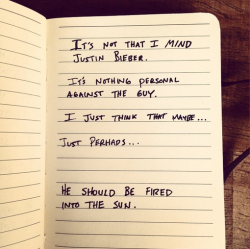 IT'S NOT THAT I MIND
JUSTIN BIEBER.
IT'S NOTHING PERSONAL
AGAINST THE GUY.
I JUST THINK THAT MAYBE...
JUST PERHAPS...
HE SHOULD BE FIRED
INTO THE SUN.